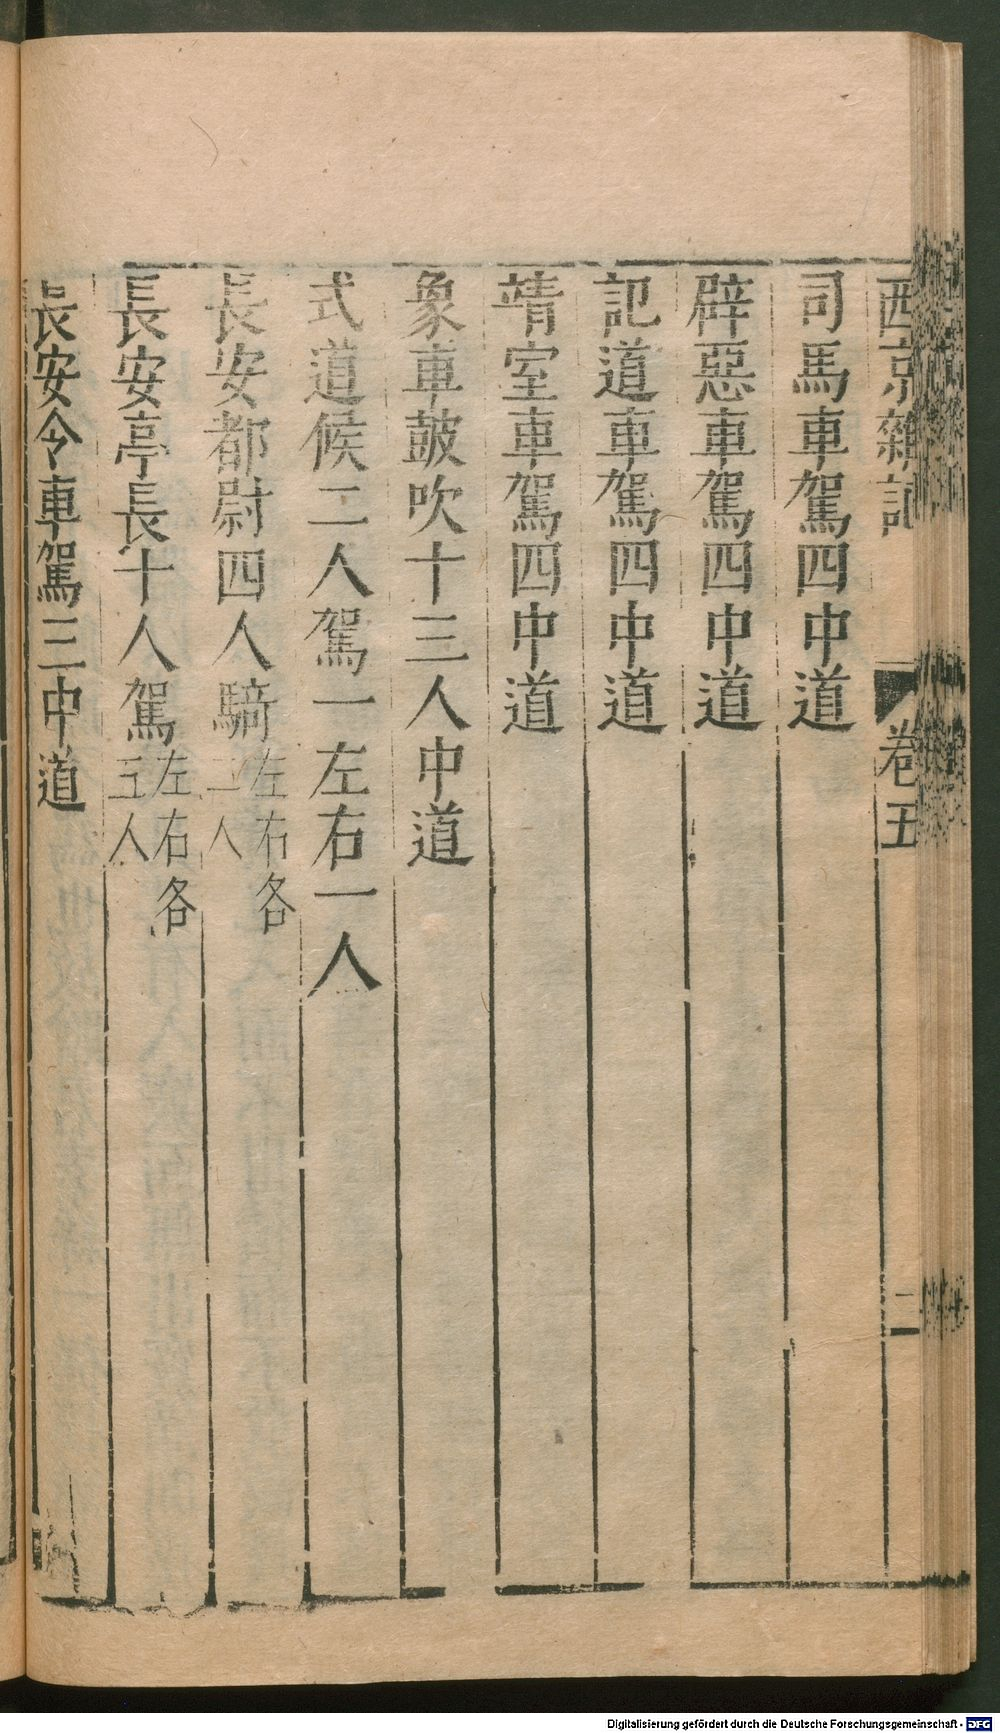 西京雜記 卷五 二
司馬車駕四中道
辟惡車駕四中道
記道車駕四中道
靖室車駕四中道
象車皷吹十三人中道
式道候二人駕一左右一人
長安都尉四人騎左右各二人
長安亭長十人駕左右各五人
長安令車駕三中道
Digitalisierung gefördert durch die Deutsche Forschungsgemeinschaft - DFG